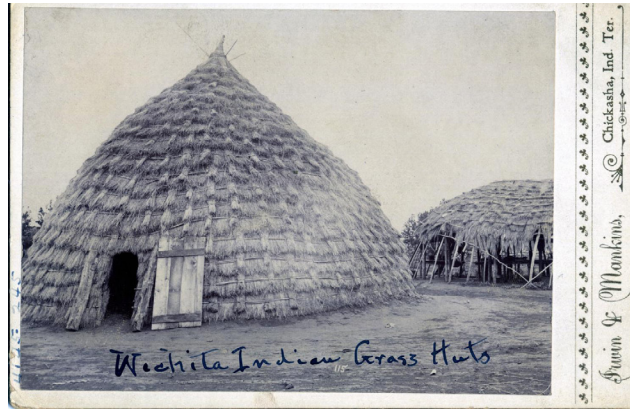 Wichita Indian Grass Huts
115
Irwin & Mankins,
Chickasha, Ind. Ter.